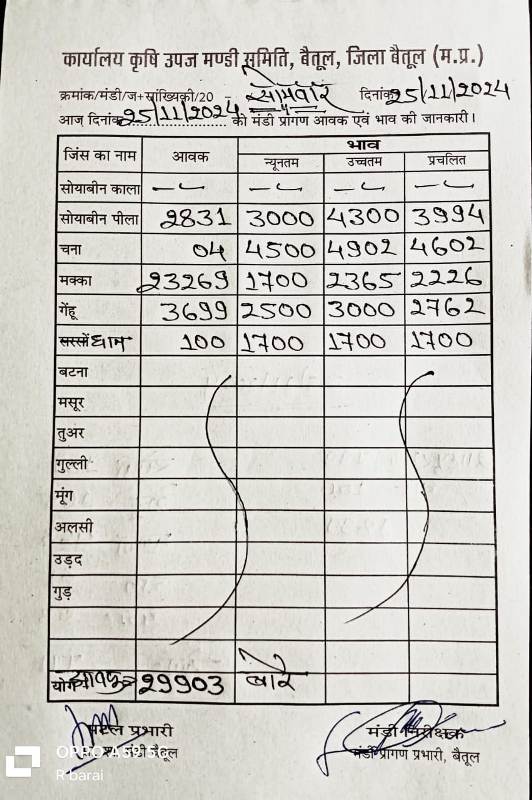 कार्यालय कृषि उपज मण्डी समिति, बैतूल, जिला बैतूल (म.प्र.)
क्रमांक/मंडी/ज+सांख्यिकी/20 - सोमवार दिनांक 25/11/2024
आज दिनांक 25/11/2024 की मंडी प्रांगण आवक एवं भाव की जानकारी।
जिंस का नाम आवक भाव
न्यूनतम उच्चतम प्रचलित
सोयाबीन काला
सोयाबीन पीला 2831 3000 4300 3994
चना 04 4500 4902 4602
मक्का 23269 1700 2365 2226
गेंहू 3699 2500 3000 2762
सरसों धान 100 1700 1700 1700
बटना
मसूर
तुअर
गुल्ली
मूंग
अलसी
उड़द
गुड़
योग आवक 29903 बोरे
प्रभारी मंडी निरीक्षक
बैतूल मंडी प्रांगण प्रभारी, बैतूल
OPPO A59 5G
R barai